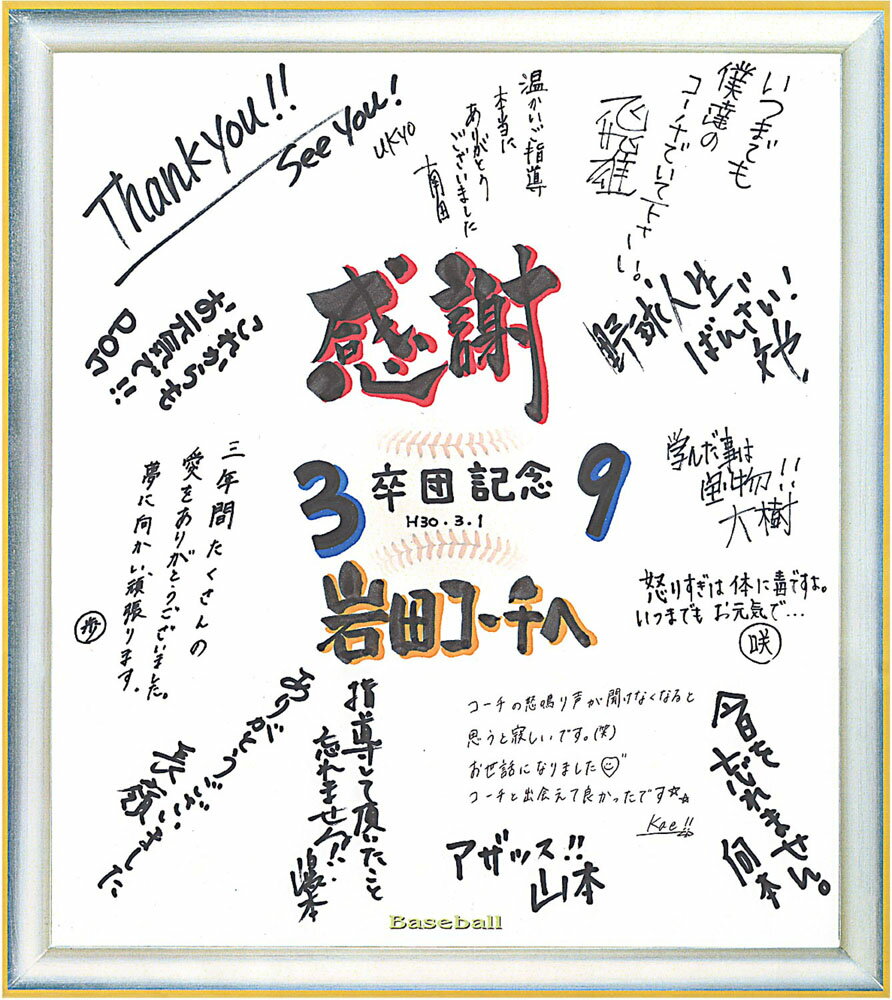 Thank You!!
See You!
UKYO
温かいご指導
本当に
ありがとう
ございました
南田
いつまでも
僕達の
コーチでいて下さい。
野球人生
ばんざい!
文也
これからも
お元気で!!
感謝
3 卒団記念 9
H30.3.1
岩田コーチへ
学んだ事は
宝物!!
大樹
怒りすぎは体に毒ですよ。
いつまでもお元気で…
咲
三年間たくさんの
愛をありがとうございました。
夢に向かい頑張ります。
歩
ありがとうございました
指導して頂いたこと
忘れません!!
コーチの悲鳴り声が聞けなくなると
思うと寂しいです。(笑)
お世話になりました
コーチと出会えて良かったです☆☆
Kae!!
アザッス!!
山本
今日を忘れません。
Baseball